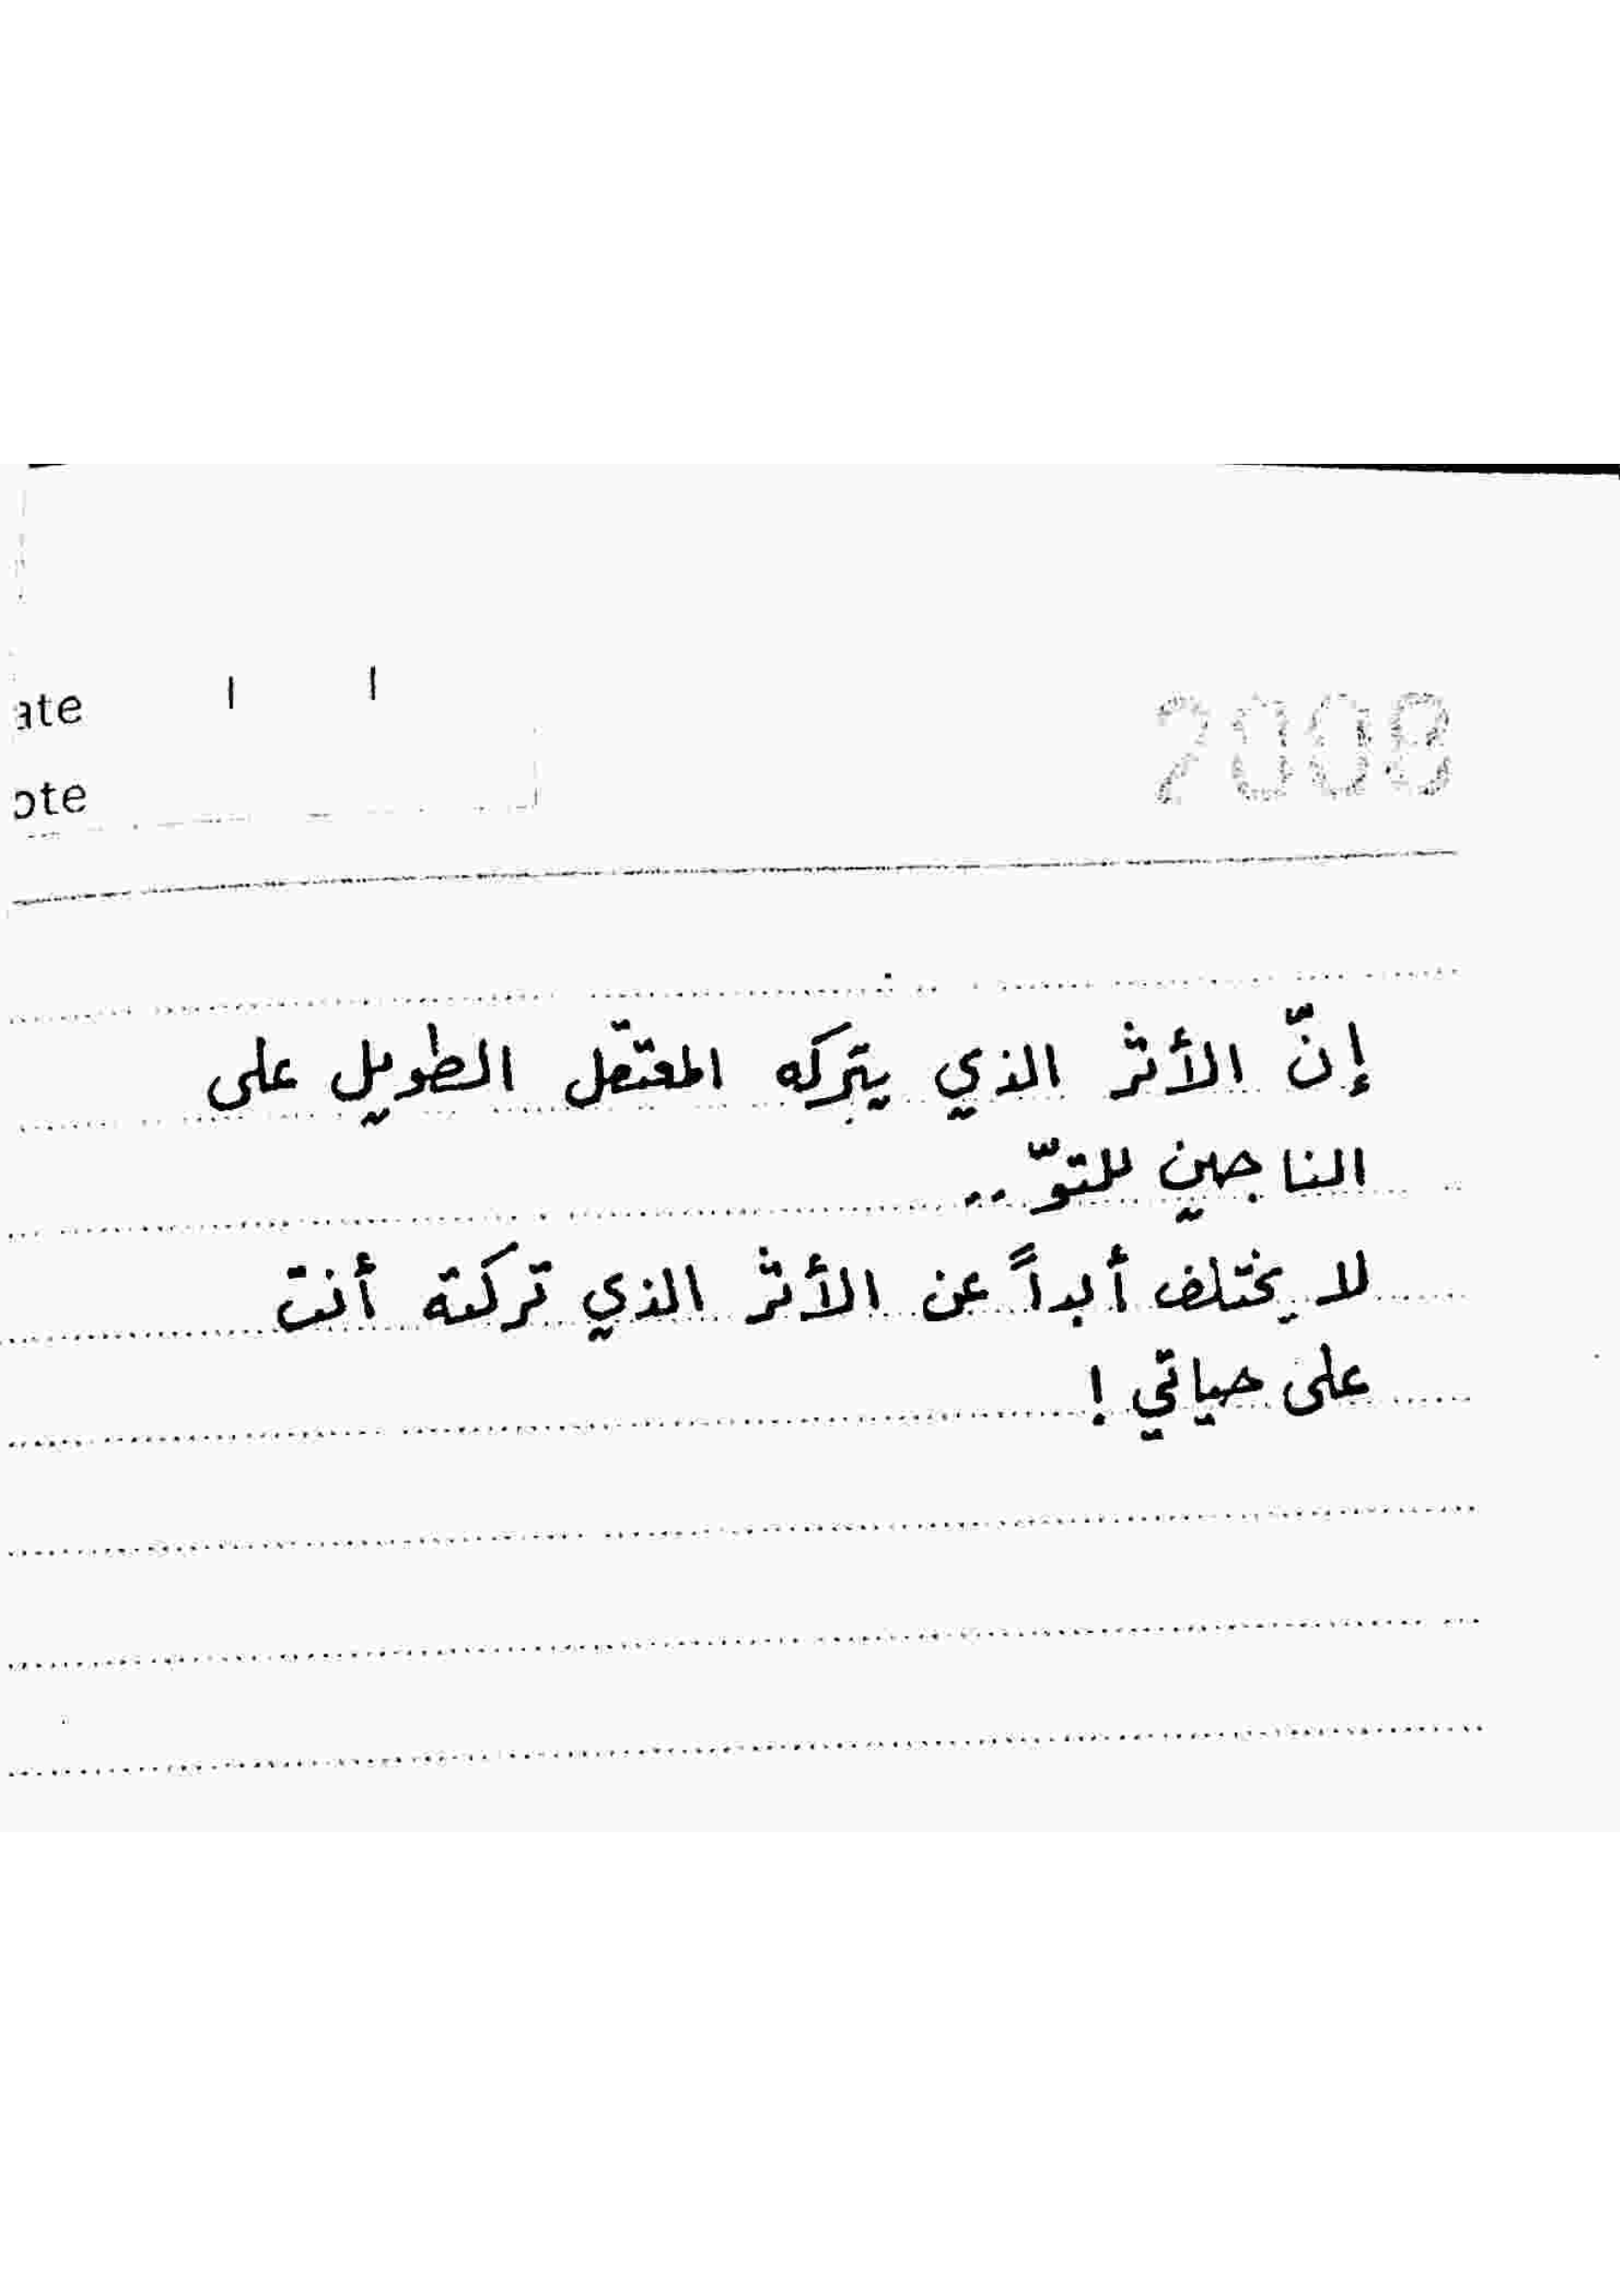 ate / /
2008
ote
إنّ الأثر الذي يتركه المعتقل الطويل على
الناجين للتوّ..
لا يختلف أبداً عن الأثر الذي تركته أنت
على حياتي !